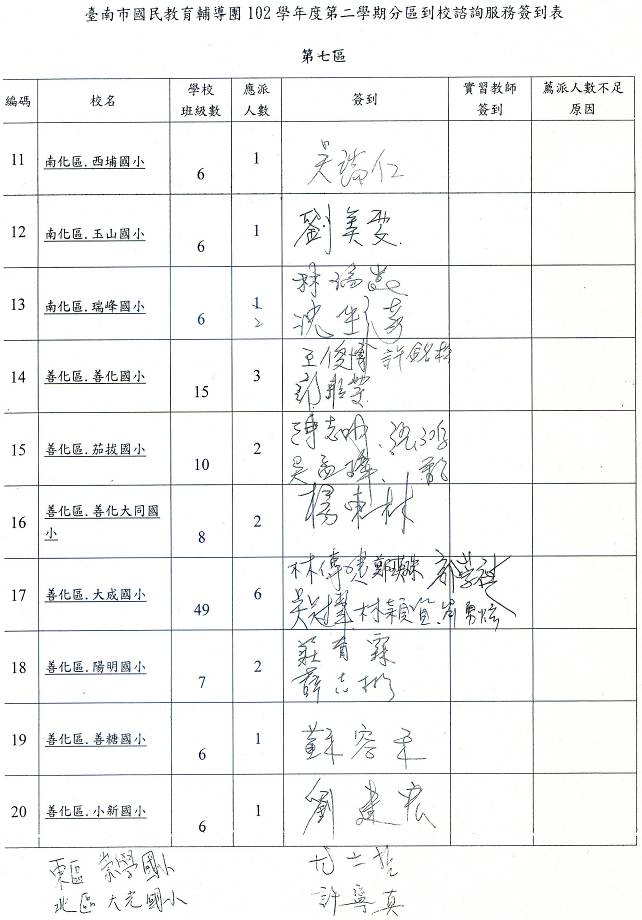 臺南市國民教育輔導團102學年度第二學期分區到校諮詢服務簽到表
第七區
編碼 校名 學校班級數 應派人數 簽到 實習教師簽到 薦派人數不足原因
11 南化區.西埔國小 6 1 吳瑞仁
12 南化區.玉山國小 6 1 劉美雯
13 南化區.瑞峰國小 6 1 2 林瑞
14 善化區.善化國小 15 3 王俊博 許銘
15 善化區.茄拔國小 10 2 陳志明
16 善化區.善化大同國小 8 2 楊東林
17 善化區.大成國小 49 6 林傳
18 善化區.陽明國小 7 2 莊育霖
薛志
19 善化區.善糖國小 6 1 蘇容禾
20 善化區.小新國小 6 1 劉建宏
東區 崇學國小 尤士哲
北區 大光國小 許寧真